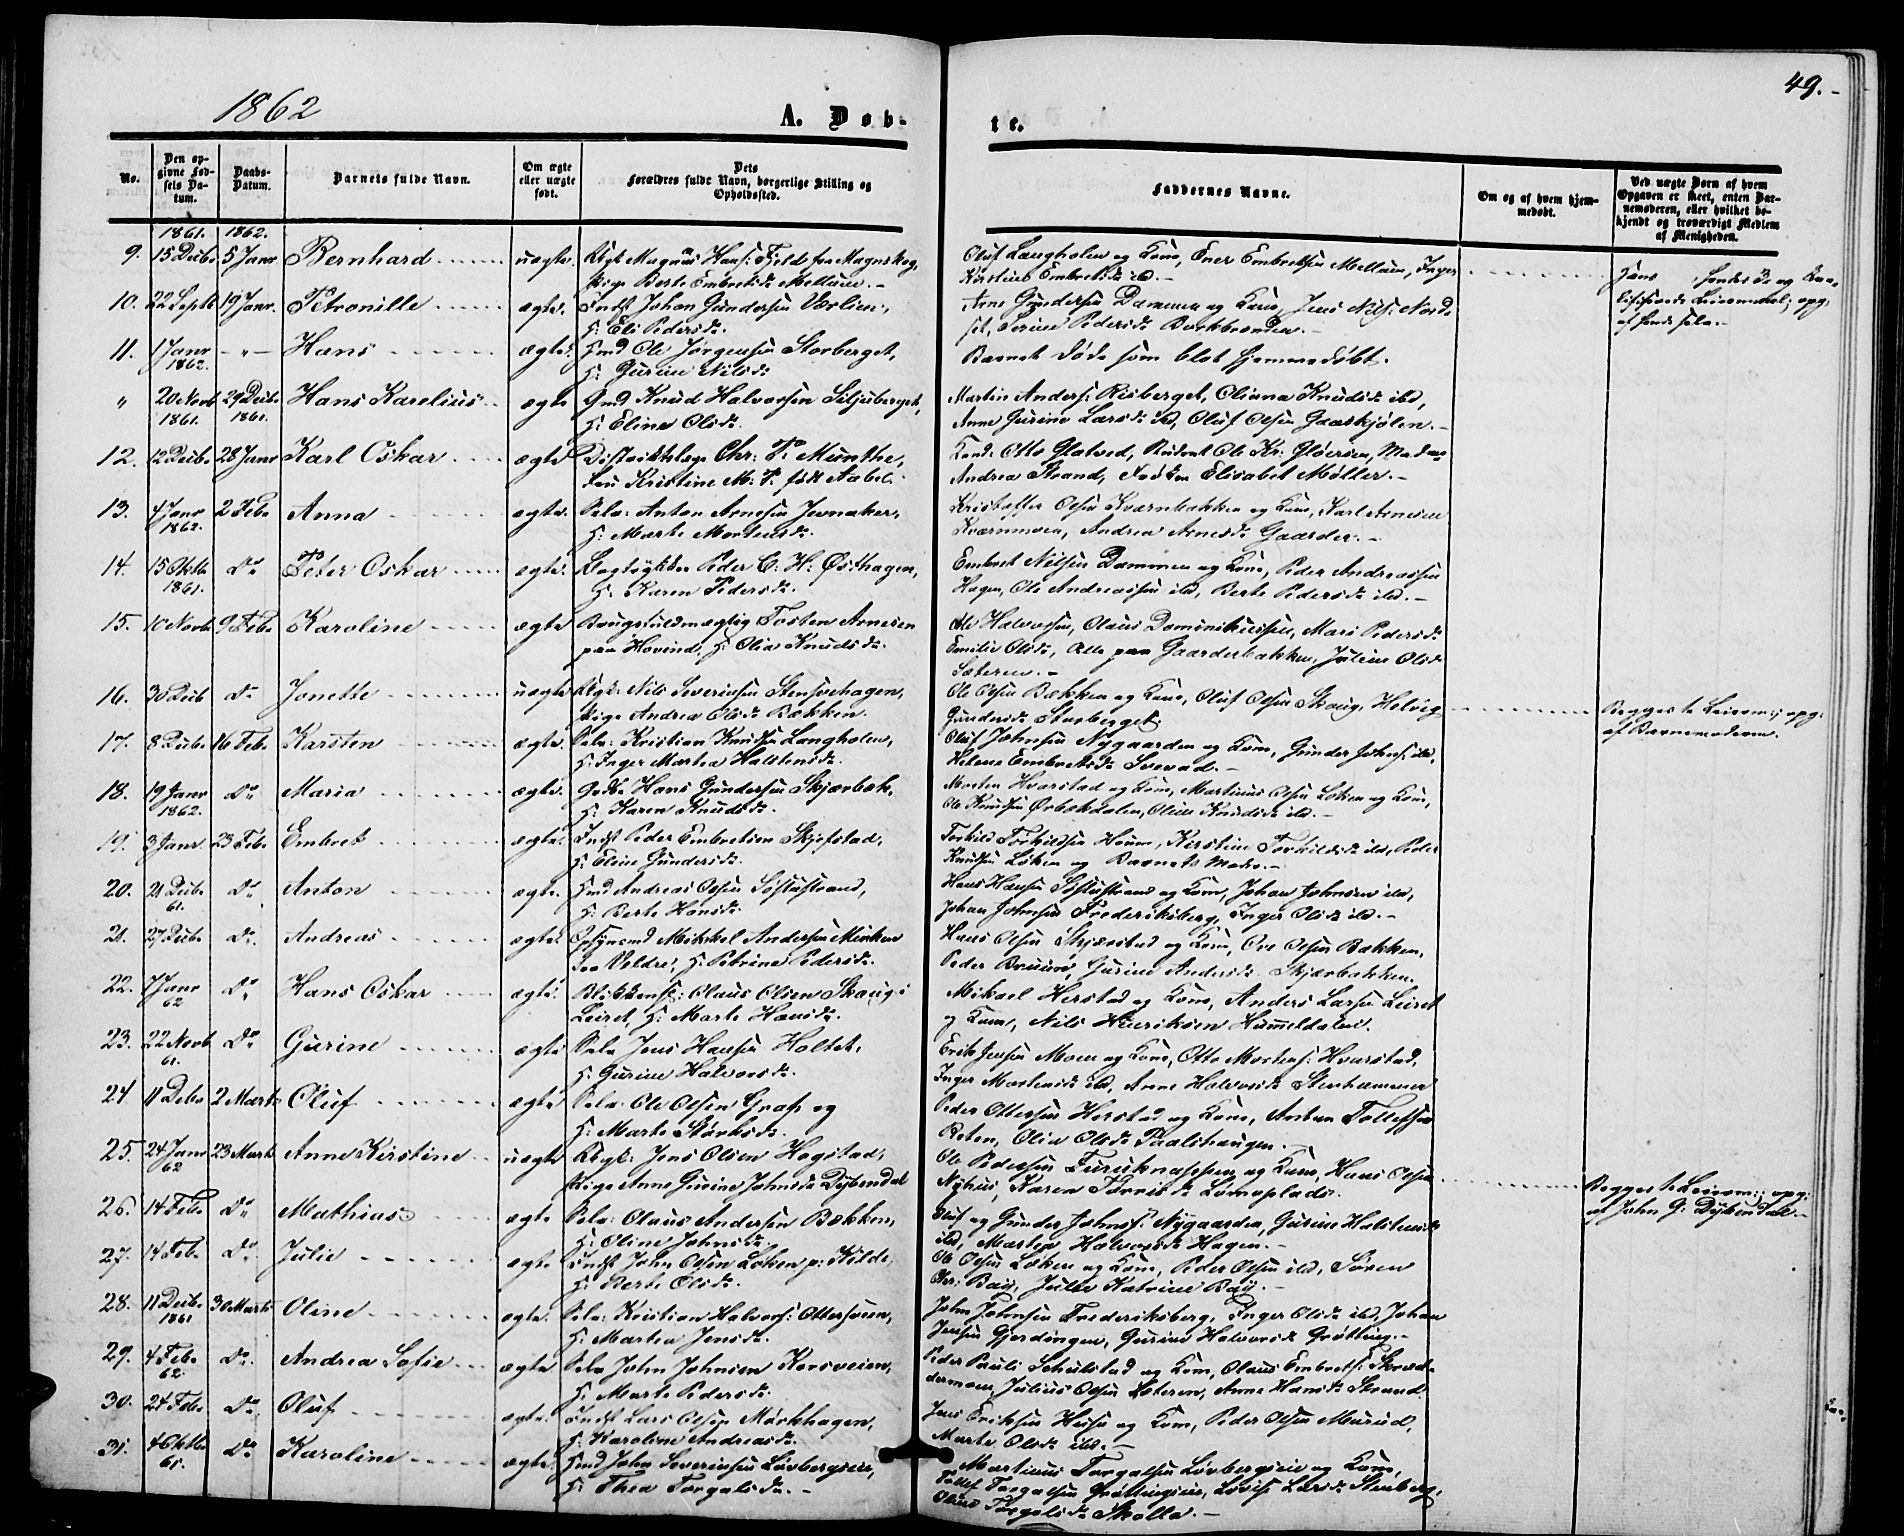 1862
A. Døb-
te.
49.-
No.
Den op-
givne Fød-
sels Da-
tum.
Daabs-
Datum.
Barnets fulde Navn.
Om ægte
eller uægte
født.
Dets
Forældres fulde Navn, borgerlige Stilling og
Opholdssted.
Faddernes Navne.
Om og af hvem hjem-
medøbt.
Ved uægte Børn af hvem
Opgaven er skeet, enten Bar-
nemoderen, eller hvilket be-
kjendt og troværdigt Medlem
af Menigheden.
1861. 1862.
9. 15 Decbr 5 Janr Bernhard uægte. Ungk. Magnus Hans: Fjeld fra Magnskog,
Pige Berte Embretsd: Mellum.-
Oluf Langholen og Kone, Ener Embretsen Mellum, Inger
Kirstine Embretsd: ibd.-
10. 22 Septb 19 Janr. Petronille ægte. Indst Johan Gundersen Vorlien,
H: Eli Pedersd:
Arne Gundersen Dammen og Kone, Jens Nils: Nord-
set, Serine Pedersd: Borkbrænden.-
af hende selv.-
11. 1 Janr - " - Hans ægte. Hmd Ole Jørgensen Storberget,
1862.
H: Gurine Nilsd:
Barnet døde som blot hjemmedøbt.
" 20 Novb 29 Decbr Hans Karelius ægte Gmd Knud Halvorsen Siljuberget,
1861. 1861.
H: Eline Olsd:
Martin Anders: Risberget, Oliana Knudsd: ibd,
Anne Gurine Larsd: ibd, Oluf Olsen Gaaskjølen.-
12. 12 Decbr 28 Janr Karl Oskar ægte Distriktslæge Chr: P. Munthe,
Fru Kristine M. P. født Aabel.
Kand: Otto Glatved, Student Ole Kr: Gløersen, Madm
Andrea Strand, Frøken Elisabet Møller.-
13. 4 Janr 2 Febr Anna ægte. Selv: Anton Arnesen Jevnaker,
1862.
H: Marte Mortensd:
Kristoffer Olsen Kvernbakken og Kone, Karl Arnesen
Kvernmoen, Andrea Arnesd: Gaarder.-
14. 15 Oktbr Do Peter Oskar ægte. Peder C: H: Østhagen,
1861.
H: Karen Pedersd:
Embret Nilsen Dammen og Kone, Peder Andreassen
Hagen, Ole Andreassen ibd, Berte Pedersd: ibd.-
15. 10 Novb 9 Febr Karoline ægte Brugsfuldmægtig Tosten Arnesen
paa Hovind, H: Olia Knudsd:
Ole Halvorsen, Olaus Dominikussen, Mari Pedersd:
Emilie Olsd:, Alle paa Gaarderbakken, Juline Olsd:
Sæteren.-
16. 30 Decb Do Jonette uægte Ungk: Nils Severinsen Stensvehagen,
Pige Andrea Olsd: Bækken.
Ole Olsen Bækken og Kone, Oluf Olsen Skaug, Helvig
Gundersd: Storberget
Begges 1te Leierm:, opg:
af Barnemoderen.
17. 8 Decbr 16 Febr Karsten ægte. Selv: Kristian Knudsen Langholen,
H: Inger Martea Halstensd:
Oluf Johnsen Nygaarden og Kone, Gunder Johns: ibd,
Helene Embretsd: Svevad.-
18. 19 Janr Do Maria ægte. Hans Gundersen Skjærbæk,
1862.
H: Karen Knudsd:
Morten Hvarstad og Kone, Martinus Olsen Løken og Kone,
Ole Knudsen Ørbækdalen, Oline Knudsd: ibd.-
19. 3 Janr. 23 Febr Embret ægte. Indst Peder Embretsen Skjefstad,
H: Eline Gundersd:
Torkild Torkildsen Houm, Kirstine Torkildsd: ibd, Peder
Knudsen Løken og Barnets Moder.-
20. 21 Decbr Do Anton ægte. Hmd Andreas Olsen Søstustrand,
61.
H: Berte Hansd:
Hans Hansen Søstustrand og Kone, Johan Johnsen ibd,
Johan Johnsen Frederiksberg, Inger Olsd: ibd.-
21. 27 Decbr Do. Andreas ægte. Opsynsmd Mikkel Andersen Minken
H: Petrine Pedersd:
Hans Olsen Skjærstad og Kone, Ove Olsen Bakken,
Peder Bruun, Gurine Andersd: Skjærbakken.
22. 7 Janr Do Hans Oskar ægte. Olaus Olsen Skaug i
62
Leiret, H: Marte Hansd:
Mikael Herstad og Kone, Anders Larsen Leiret
og Kone, Nils Henriksen Hummeldalen.
23. 22 Novb Do Gurine ægte Selv Jens Hansen Holtet,
61.
H: Gurine Halvorsd:
Erik Jensen Moen og Kone, Otto Mortens: Hvarstad,
Inger Mortensd: ibd, Anne Halvorsd: Stenhammer
24 11 Decbr 2 Marts Oluf ægte Selv: Ole Olsen Graf og
H: Marte Størksd:
Peder Ottersen Herstad og Kone, Anton Tollefsen
Roten, Olia Olsd: Paalshaugen.-
25. 24 Janr 23 Marts Anne Kirstine uægte Ungk: Jens Olsen Hogstad,
62
Pige Anne Gurine Johnsd: Dybendal
Ole Pedersen Furuknappen og Kone, Hans Olsen
Nyhus, Karen Tomisd: Lomoplads.
Begges 1te Leierm:, opg:
af John G: Dybendal.-
26. 14 Febr Do Mathias ægte Selv: Olaus Andersen Bækken,
H: Oline Johnsd:
Oluf og Gunder Johns: Nygaarden, Gurine Halstensd:
ibd, Martea Halvorsd: Hagen.-
27. 14 Febr Do. Julie ægte Indst John Olsen Løken p: Kilde,
H: Berte Olsd:
Ole Olsen Løken og Kone, Peder Olsen ibd, Søren
Chr: Bay, Julie Katrine Bay.
28. 11 Decbr 30 Marts Oline ægte. Selv: Kristian Halvors: Ottersøen,
1861
H: Martea Jensd:
John Johnsen Frederiksberg, Inger Olsd: ibd, Johan
Jensen Gjerdingen, Gurine Halvorsd: Grøtting.-
29. 4 Febr Do. Andrea Sofie ægte Selv John Johnsen Korsveien,
62.
H: Marte Pedersd:
Peder Pauls: Schulstad og Kone, Olaus Embrets: Skræd-
dermoen, Julius Olsen Sæteren, Anne Hansd: Strand
30. 24 Febr Do. Oluf ægte. Indst Lars Olsen Mørkhagen,
H: Karoline Andreasd:
Jens Eriksen Husu og Kone, Peder Olsen Murud,
Marte Olsd: ibd.-
31. 4 Oktbr Do Karoline ægte. Hmd John Severinsen Løvbergseie,
61.
H: Thea Torgalsd:.-
Martinus Torgalsen Løvbergseie og Kone,
Tollef Torgalsen Grøttingseie, Lovise Larsd: Stenberg,
Oline Torgalsd: Skolla.-